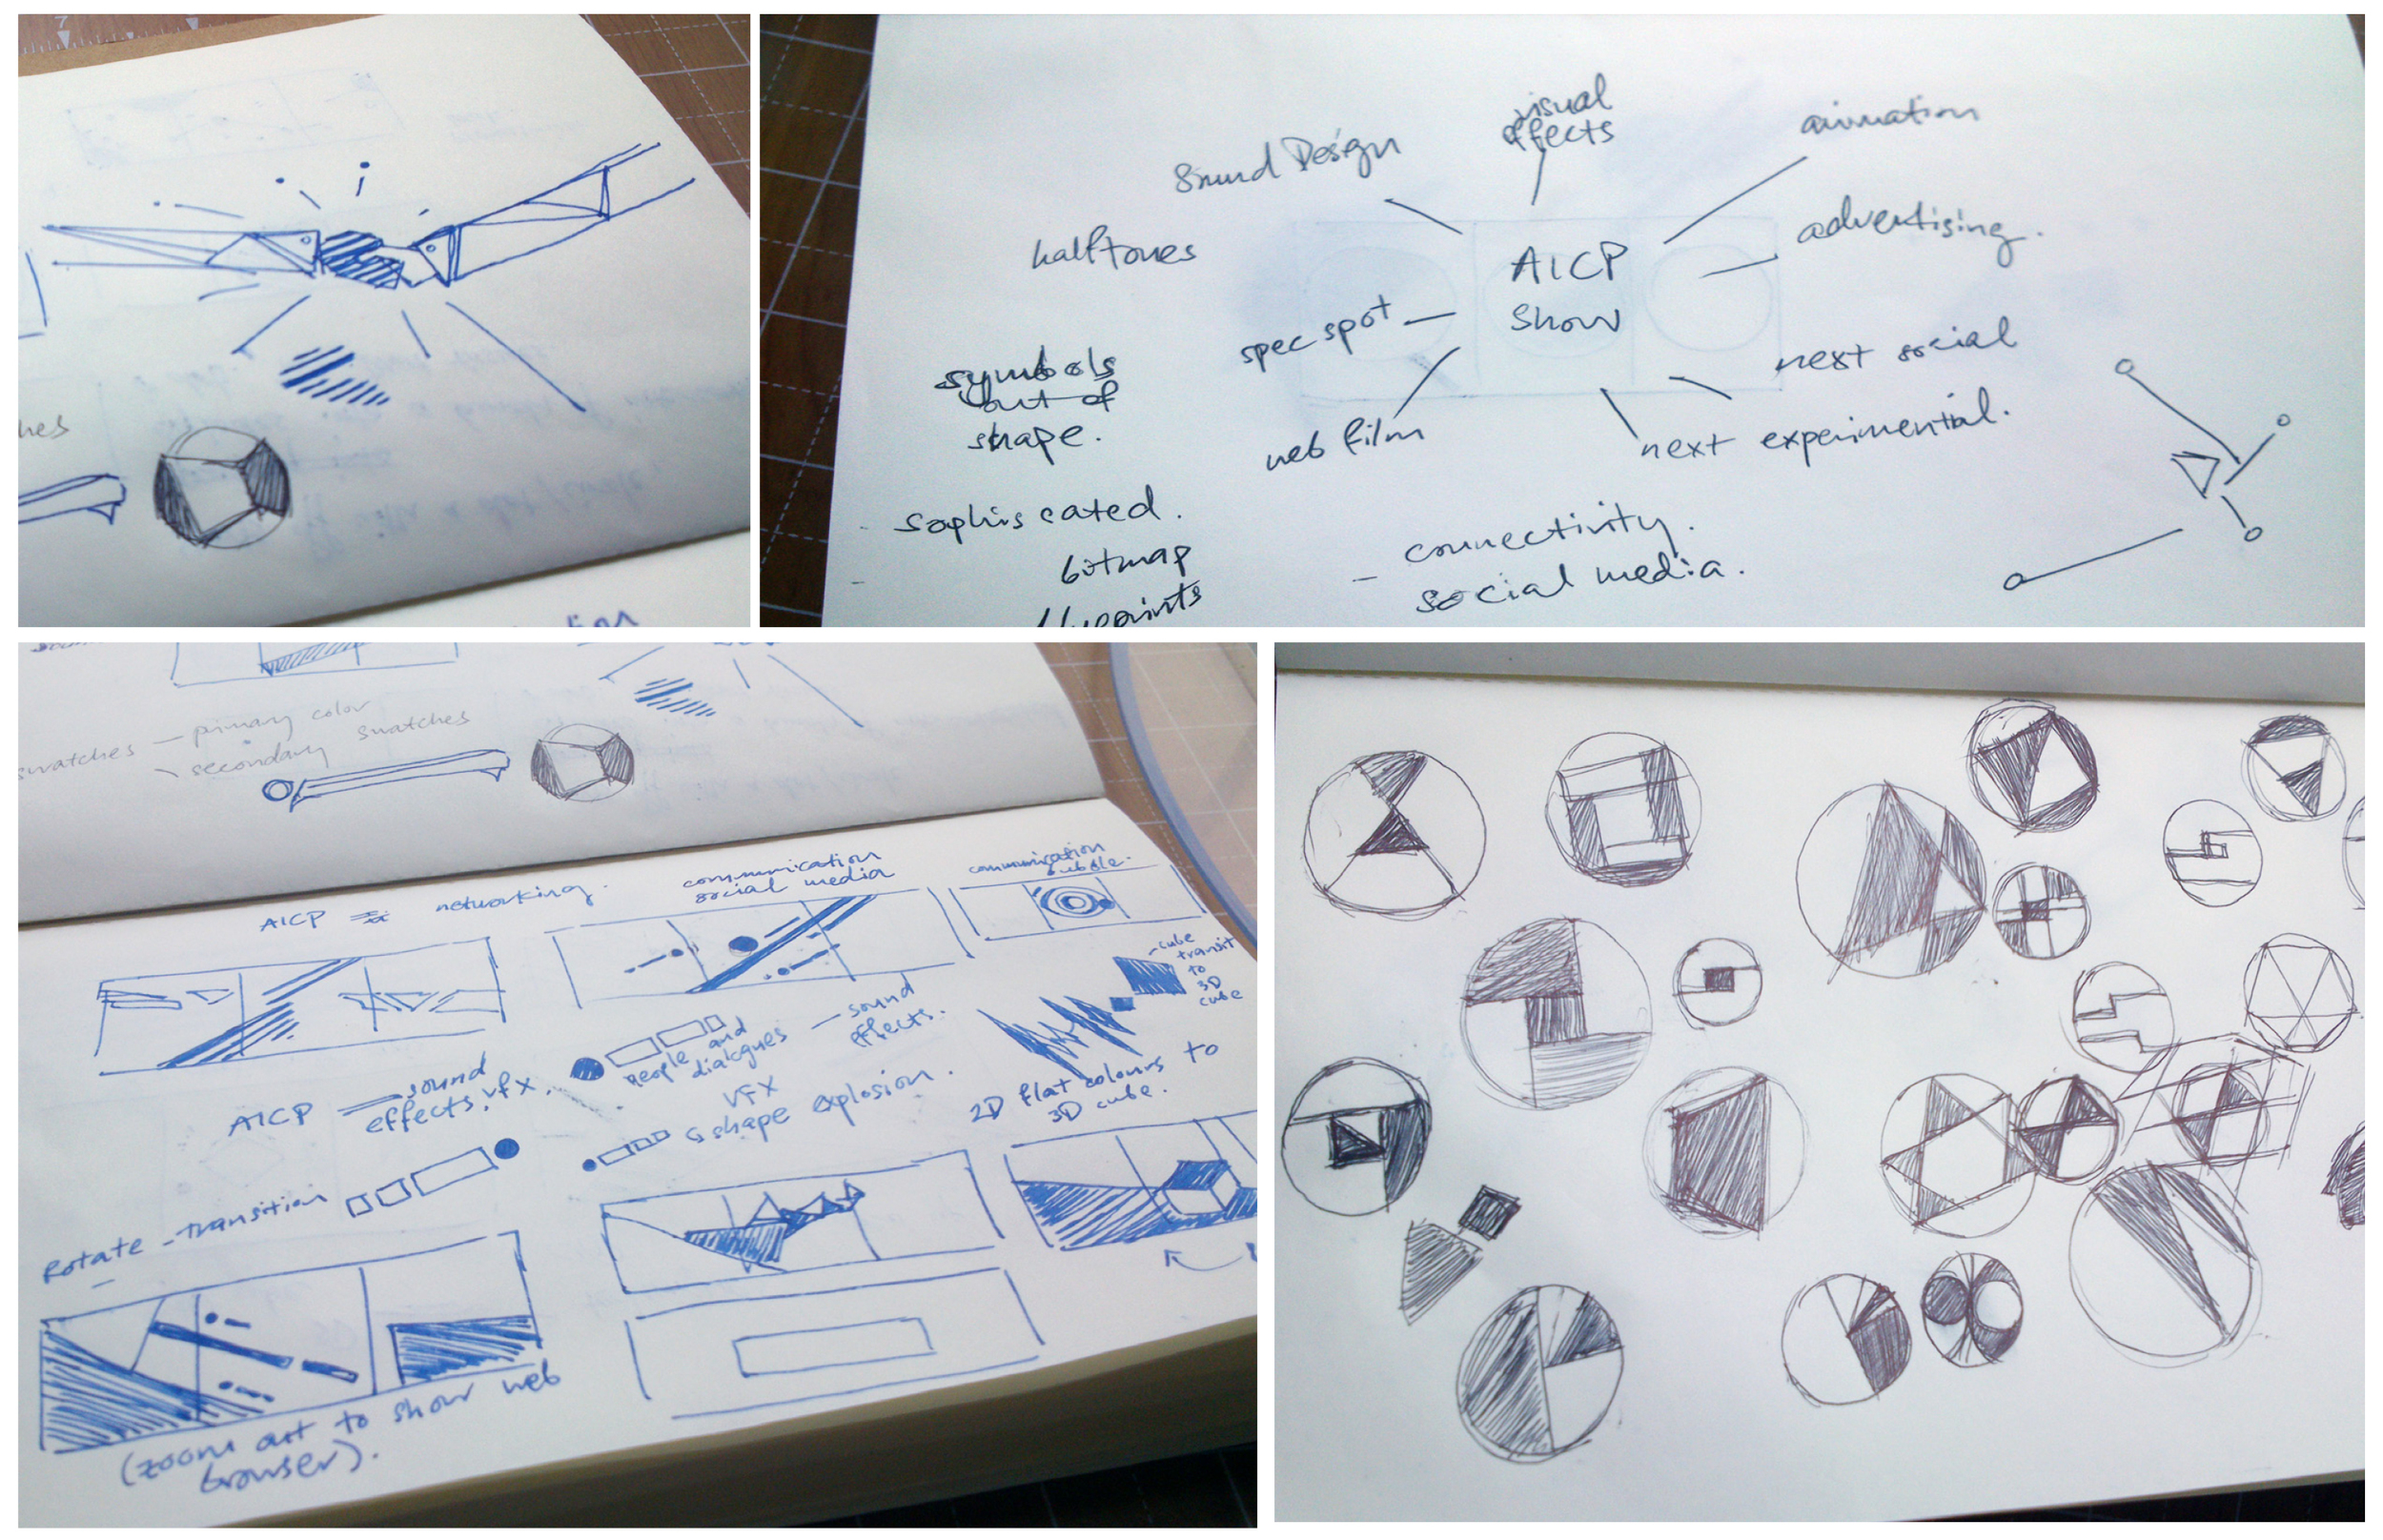 7
visual
effects
Sound Design
animation
halftones
advertising.
AICP
Show
spec spot
next social
symbols
out of
shape.
web film
next experimental.
sophiscated.
bitmap
connectivity.
social media.
swatches
primary color
secondary swatches
AICP
networking.
communication
social media
communication
cube
transit
to
3D
cube
People and
dialogues
sound
effects.
AICP
sound
effects, vfx.
VFX
shape explosion.
2D flat colours to
3D cube.
Rotate - transition
(zoom out to show web
browser).